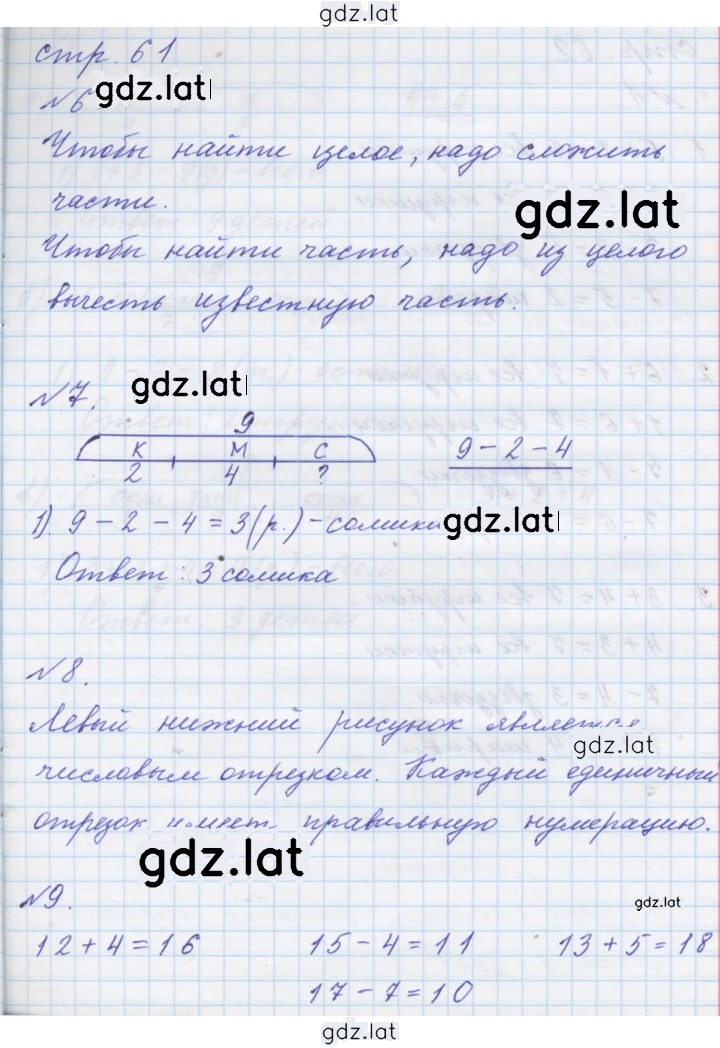 gdz.lat
стр. 61
№6 gdz.lat
Чтобы найти целое, надо сложить
части.
gdz.lat
Чтобы найти часть, надо из целого
вычесть известную часть.
gdz.lat
№7.
9
К М С
2 4 ?
9 - 2 - 4
1). 9 - 2 - 4 = 3 (р.) - сомики gdz.lat
Ответ: 3 сомика
№8.
Левый нижний рисунок является
gdz.lat
числовым отрезком. Каждый единичный
отрезок имеет правильную нумерацию.
gdz.lat
№9.
gdz.lat
12 + 4 = 16 15 - 4 = 11 13 + 5 = 18
17 - 7 = 10
gdz.lat